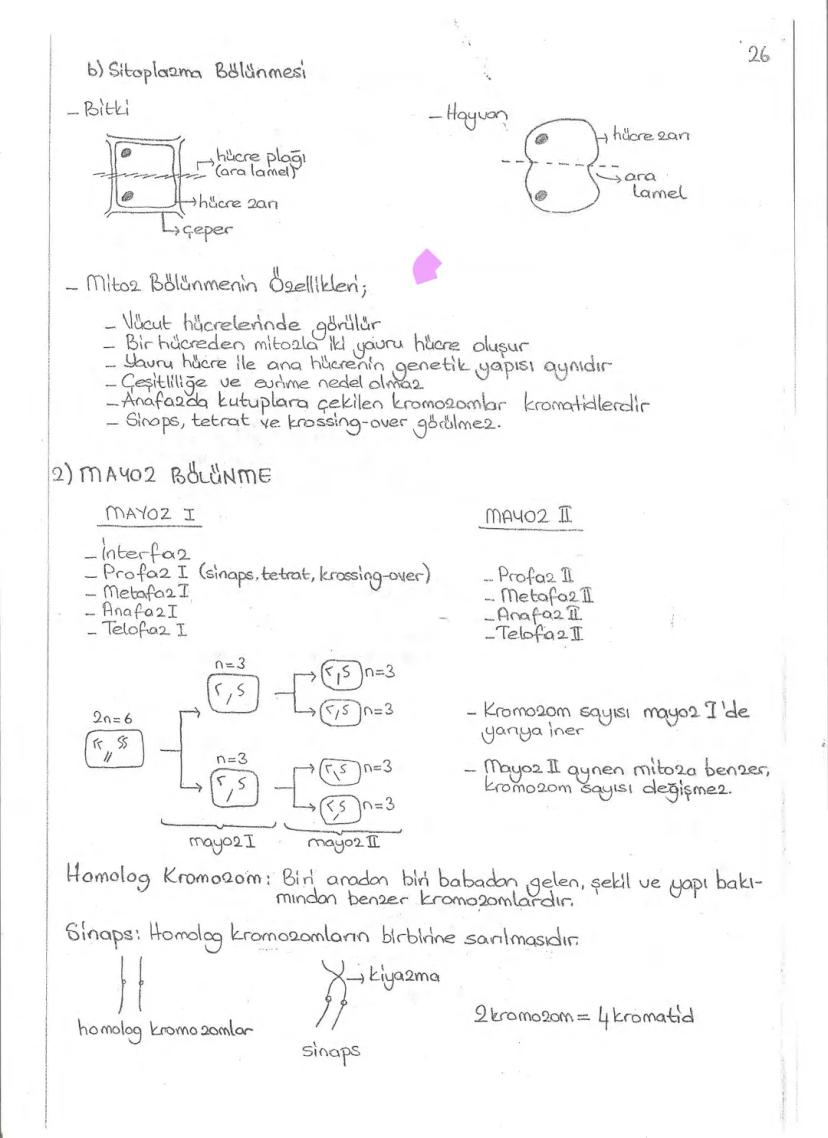 26
b) Sitoplazma Bölünmesi
- Bitki
hücre plağı
(ara lamel)
hücre zarı
çeper
- Hayvan
hücre zarı
ara
lamel
- Mitoz Bölünmenin Özellikleri;
- Vücut hücrelerinde görülür
- Bir hücreden mitozla iki yavru hücre oluşur
- Yavru hücre ile ana hücrenin genetik yapısı aynıdır
- Çeşitliliğe ve evrime nedel olmaz
- Anafazda kutuplara çekilen kromozomlar kromatidlerdir
- Sinaps, tetrat ve krossing-over görülmez.
2) MAYOZ BÖLÜNME
MAYOZ I
- İnterfaz
- Profaz I (sinaps, tetrat, krossing-over)
- Metafaz I
- Anafaz I
- Telofaz I
MAYOZ II
- Profaz II
- Metafaz II
- Anafaz II
- Telofaz II
2n=6
n=3
n=3
n=3
n=3
n=3
n=3
mayoz I
mayoz II
- Kromozom sayısı mayoz I'de
yarıya iner
- Mayoz II aynen mitoza benzer,
kromozom sayısı değişmez.
Homolog Kromozom: Biri anadan biri babadan gelen, şekil ve yapı bakı-
mından benzer kromozomlardır.
Sinaps: Homolog kromozomların birbirine sarılmasıdır.
homolog kromozomlar
kiyazma
sinaps
2 kromozom = 4 kromatid